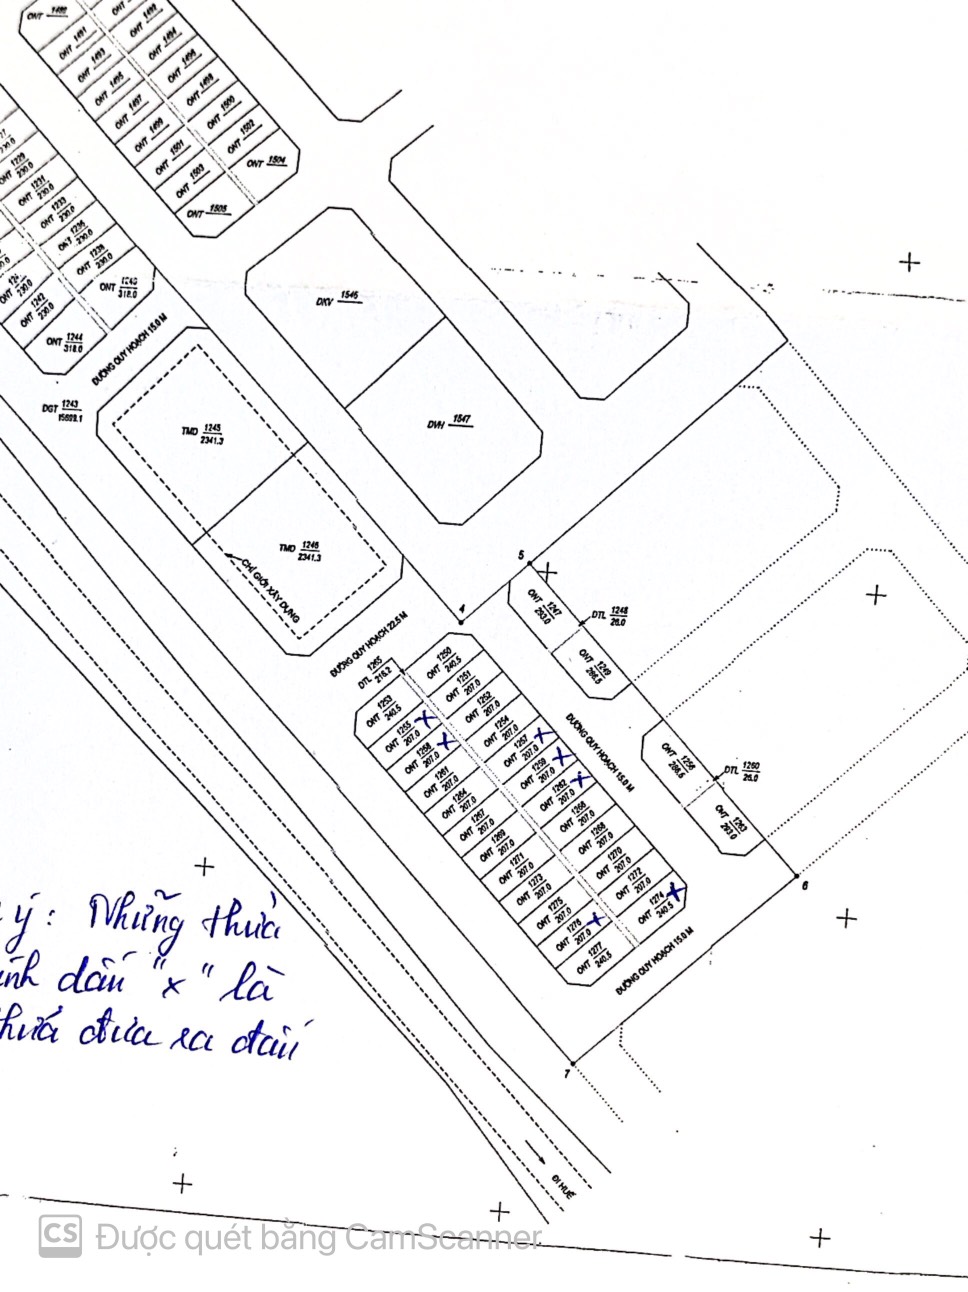 ONT 1491
ONT 1493
ONT 1495
ONT 1497
ONT 1499
ONT 1501
ONT 1503
ONT 1505
ONT 1494
ONT 1496
ONT 1498
ONT 1500
ONT 1502
ONT 1504
1229 230.0
ONT 1231 230.0
ONT 1233 230.0
ONT 1238 230.0
ONT 1240 318.0
ONT 1242 230.0
ONT 1244 318.0
ĐƯỜNG QUY HOẠCH 15.0 M
DGT 1243
TMD 1245 2341.3
TMD 1246 2341.3
CHỈ GIỚI XÂY DỰNG
DKV 1546
DVH 1547
4
5
ONT 1247 293.0
DTL 1248 26.0
ONT 1249 286.6
ĐƯỜNG QUY HOẠCH 22.5 M
DTL 1265 216.2
ONT 1250 240.5
ONT 1251 207.0
ONT 1252 207.0
ONT 1253 240.5
ONT 1254 207.0
ONT 1255 207.0
ONT 1257 207.0
ONT 1258 207.0
ONT 1259 207.0
ONT 1261 207.0
ONT 1262 207.0
ONT 1264 207.0
ONT 1266 207.0
ONT 1267 207.0
ONT 1268 207.0
ONT 1269 207.0
ONT 1270 207.0
ONT 1271 207.0
ONT 1272 207.0
ONT 1273 207.0
ONT 1274 240.5
ONT 1275 207.0
ONT 1276 207.0
ONT 1277 240.5
ĐƯỜNG QUY HOẠCH 15.0 M
ONT 1256 286.6
DTL 1260 26.0
ONT 1263 293.0
ĐƯỜNG QUY HOẠCH 15.0 M
6
7
ý: Những thửa
dấu "x" là
đưa ra đấu
ĐI HUẾ
CS Được quét bằng CamScanner